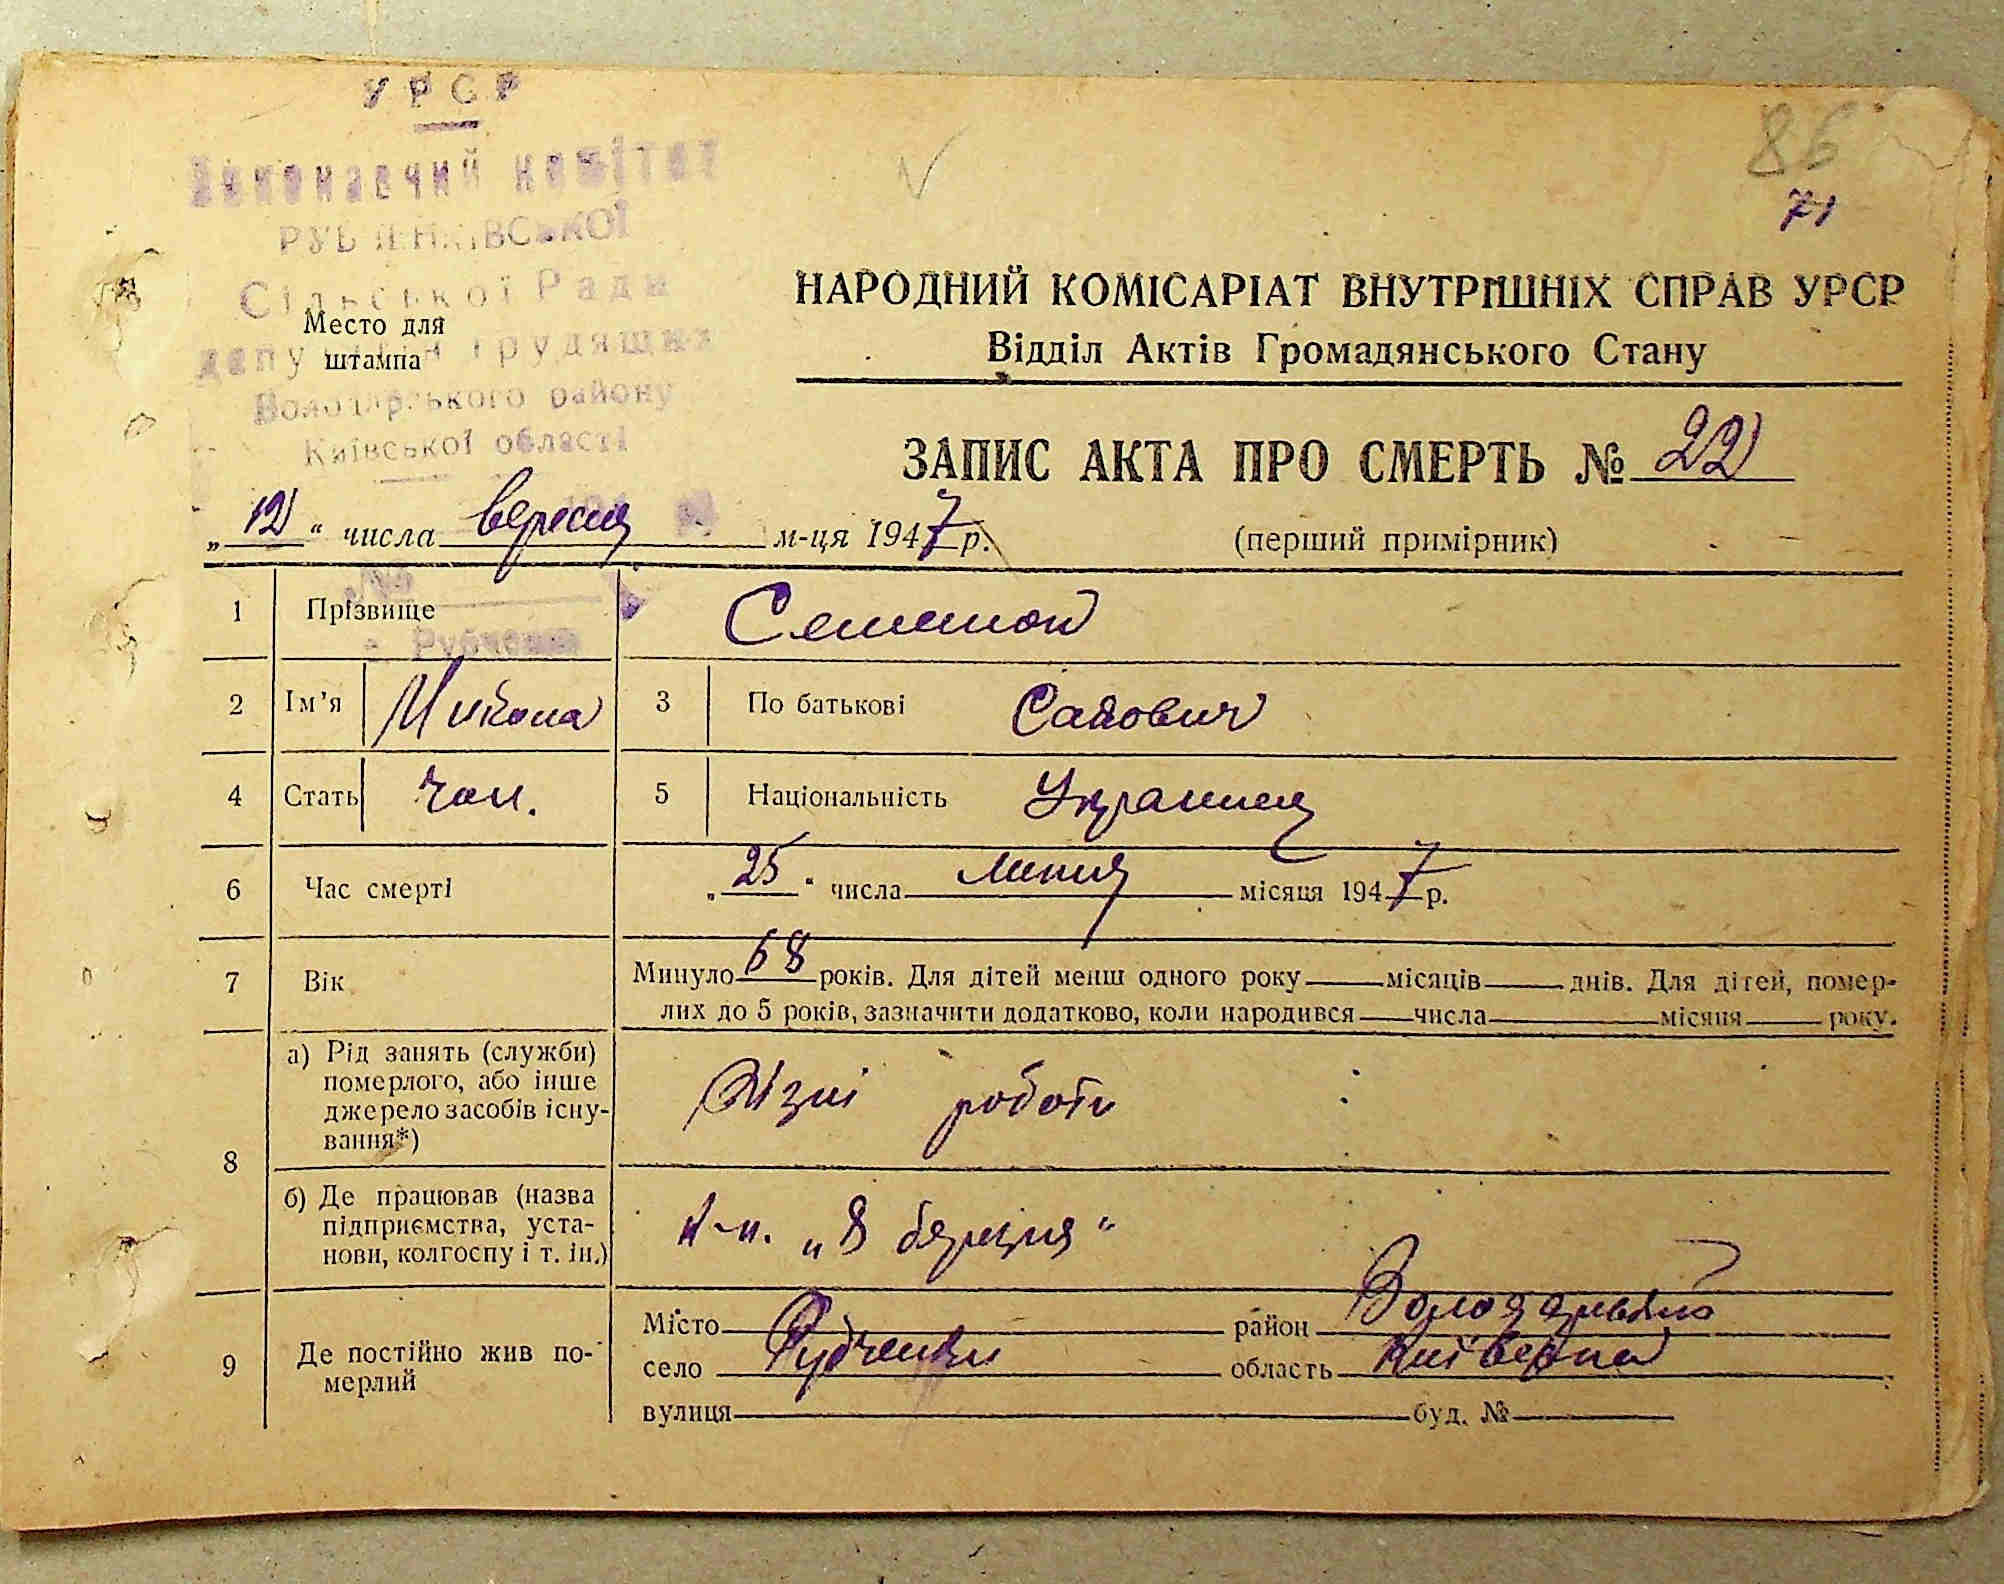 УРСР
Виконавчий комітет
РУБЧЕНКІВСЬКОЇ
Сільської Ради
депутатів трудящих
Володарського району
Київської області
Место для
штампа
86
71
НАРОДНИЙ КОМІСАРІАТ ВНУТРІШНІХ СПРАВ УРСР
Відділ Актів Громадянського Стану
ЗАПИС АКТА ПРО СМЕРТЬ № 22
„12“ числа вересня м-ця 1947 р.
(перший примірник)
1 Прізвище
с. Рубченки
2 Ім’я Микола 3 По батькові Савович
4 Стать чол. 5 Національність Українец
6 Час смерті „25“ числа липня місяця 1947 р.
7 Вік Минуло 68 років. Для дітей менш одного року місяців днів. Для дітей, помер-
лих до 5 років, зазначити додатково, коли народився числа місяця року.
8 а) Рід занять (служби)
померлого, або інше
джерело засобів існу-
вання*)
Різні роботи
б) Де працював (назва
підприємства, уста-
нови, колгоспу і т. ін.)
к-п. „8 березня“
9 Де постійно жив по-
мерлий
Місто район Володарський
село Рубченки область Київська
вулиця буд. №